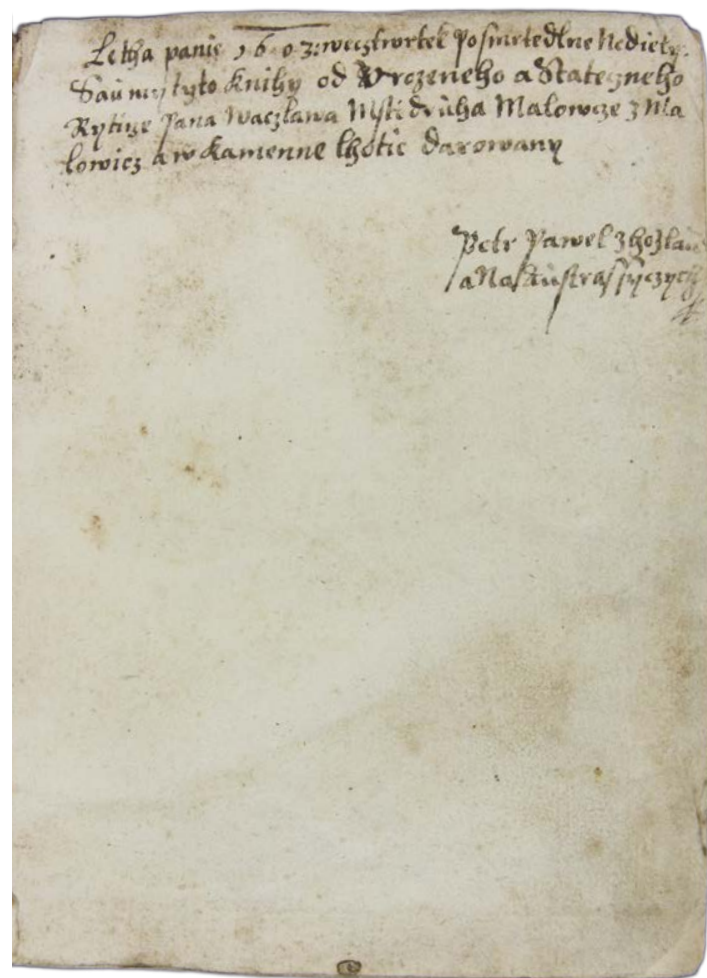 Letha panie 1603: wecztwrtek Po smrtedlne Nedieli.
Sau mi tyto knihy od Vrozeneho a Statezneho
Rytirze Jana Waczlawa Msti druha Malowcze z Ma
lowicz a w Kamenne lhotie darowany
Petr Pawel z
a Na